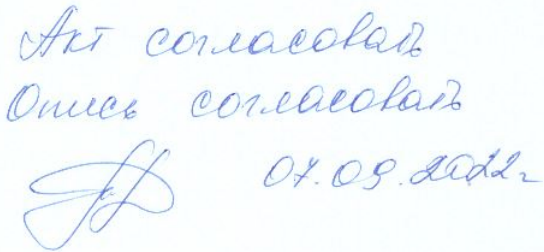 Акт согласовать
Опись согласовать
07.09.2022г